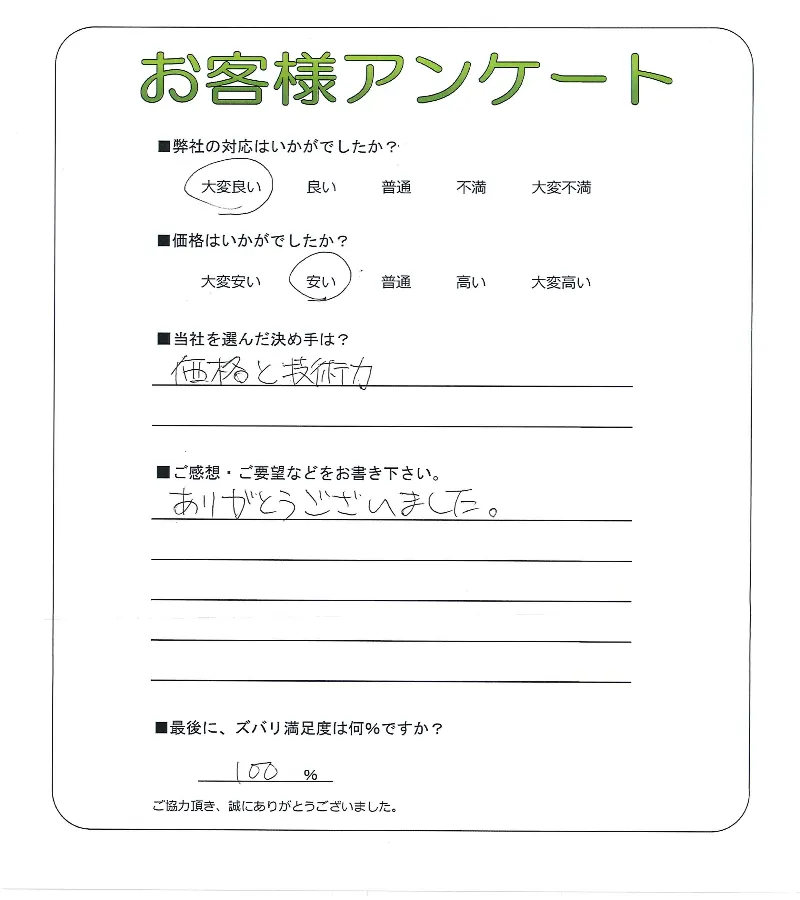 お客様アンケート
■弊社の対応はいかがでしたか？
大変良い 良い 普通 不満 大変不満
■価格はいかがでしたか？
大変安い 安い 普通 高い 大変高い
■当社を選んだ決め手は？
価格と技術力
■ご感想・ご要望などをお書き下さい。
ありがとうございました。
■最後に、ズバリ満足度は何%ですか？
100 %
ご協力頂き、誠にありがとうございました。